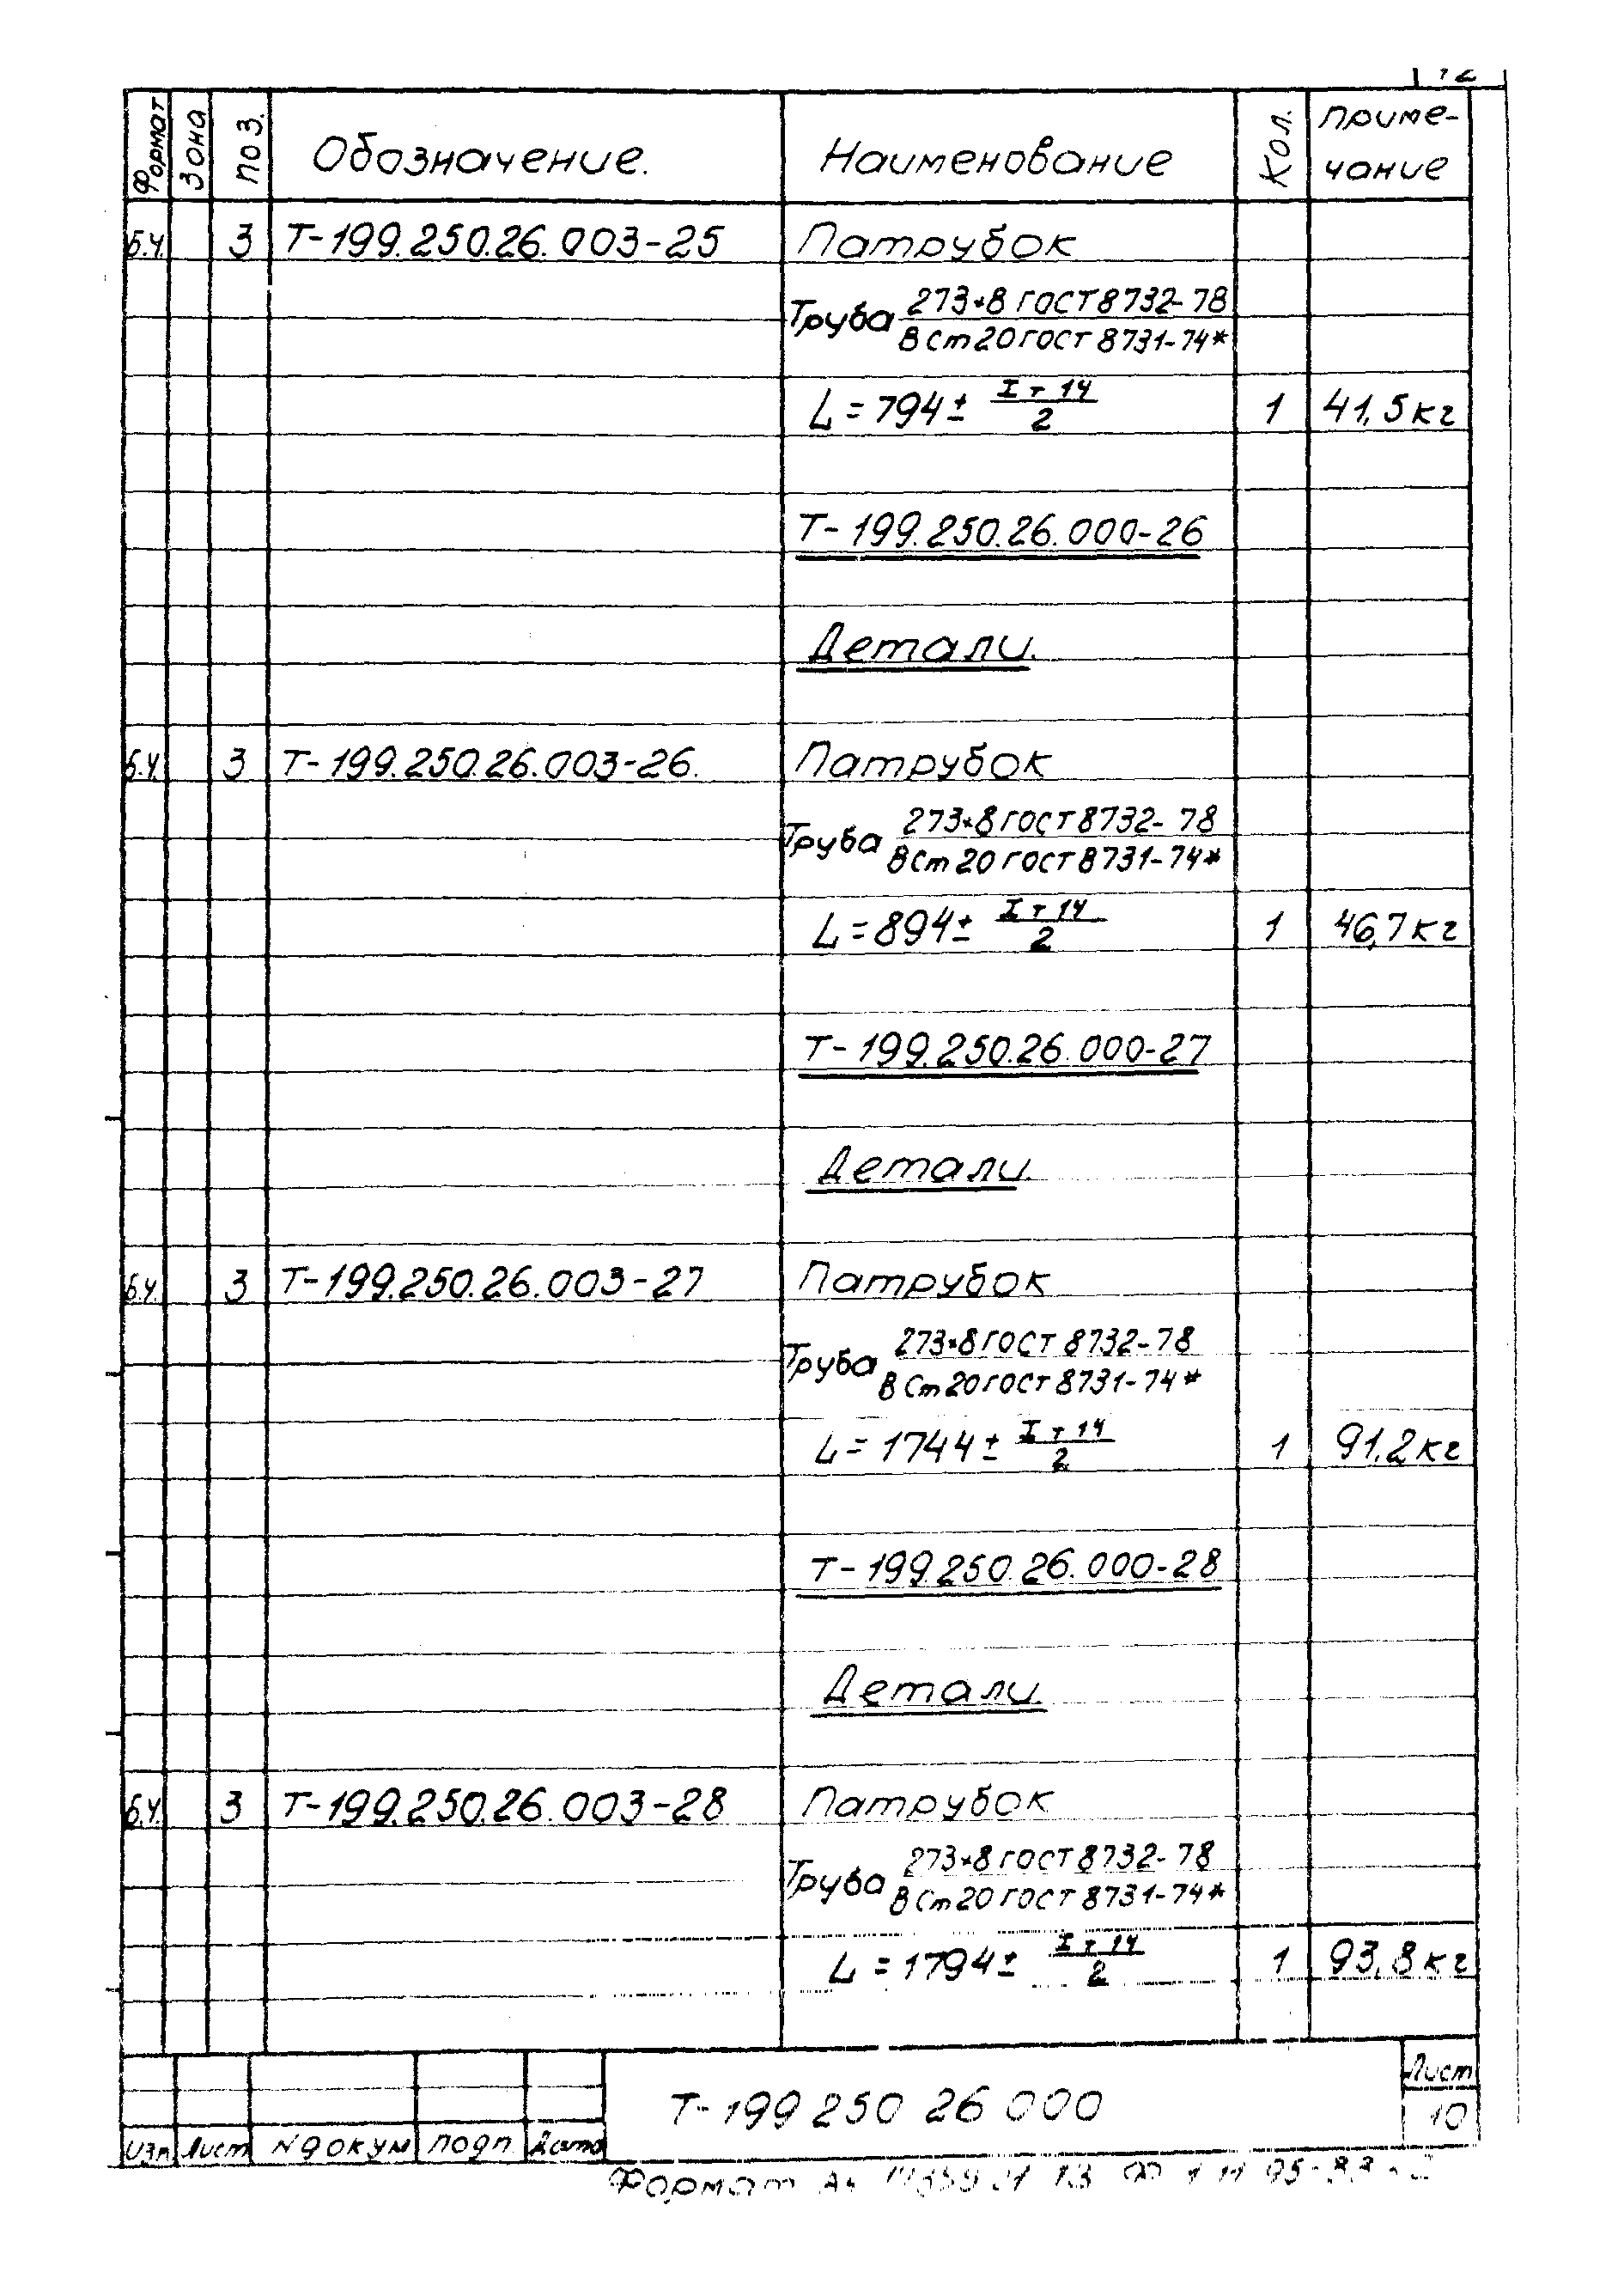 12
Формат Зона Поз. Обозначение. Наименование Кол. Приме-
чание
Б.Ч. 3 Т-199.250.26.003-25 Патрубок
Труба 273*8 ГОСТ 8732-78
В Ст 20 ГОСТ 8731-74*
L=794± Iт14/2 1 41,5кг
Т-199.250.26.000-26
Детали.
Б.Ч. 3 Т-199.250.26.003-26. Патрубок
Труба 273*8 ГОСТ 8732-78
В Ст 20 ГОСТ 8731-74*
L=894± Iт14/2 1 46,7кг
Т-199.250.26.000-27
Детали.
Б.Ч. 3 Т-199.250.26.003-27 Патрубок
Труба 273*8 ГОСТ 8732-78
В Ст 20 ГОСТ 8731-74*
L=1744± Iт14/2 1 91,2кг
Т-199.250.26.000-28
Детали.
Б.Ч. 3 Т-199.250.26.003-28 Патрубок
Труба 273*8 ГОСТ 8732-78
В Ст 20 ГОСТ 8731-74*
L=1794± Iт14/2 1 93,8кг
Т-199 250 26 000
Лист
10
Изм Лист N докум подп. Дата
Формат А4